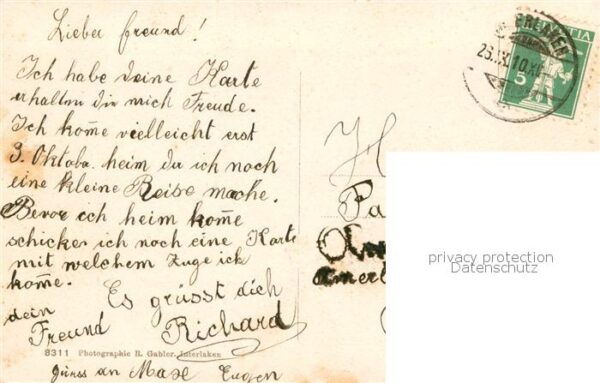 Lieber Freund!
Ich habe deine Karte
erhalten die mich Freude.
Ich kom̅e vielleicht erst
3. Oktoba. heim da ich noch
eine kleine Reise mache.
Bevor ich heim kom̅e
schicker ich noch eine Karte
mit welchem Zuge ich
kom̅e.
Es grüsst dich
dein
Freund Richard
8311 Photographie R. Gabler, Interlaken
Gruss an Max Eugen
HELVETIA
5
privacy protection
Datenschutz